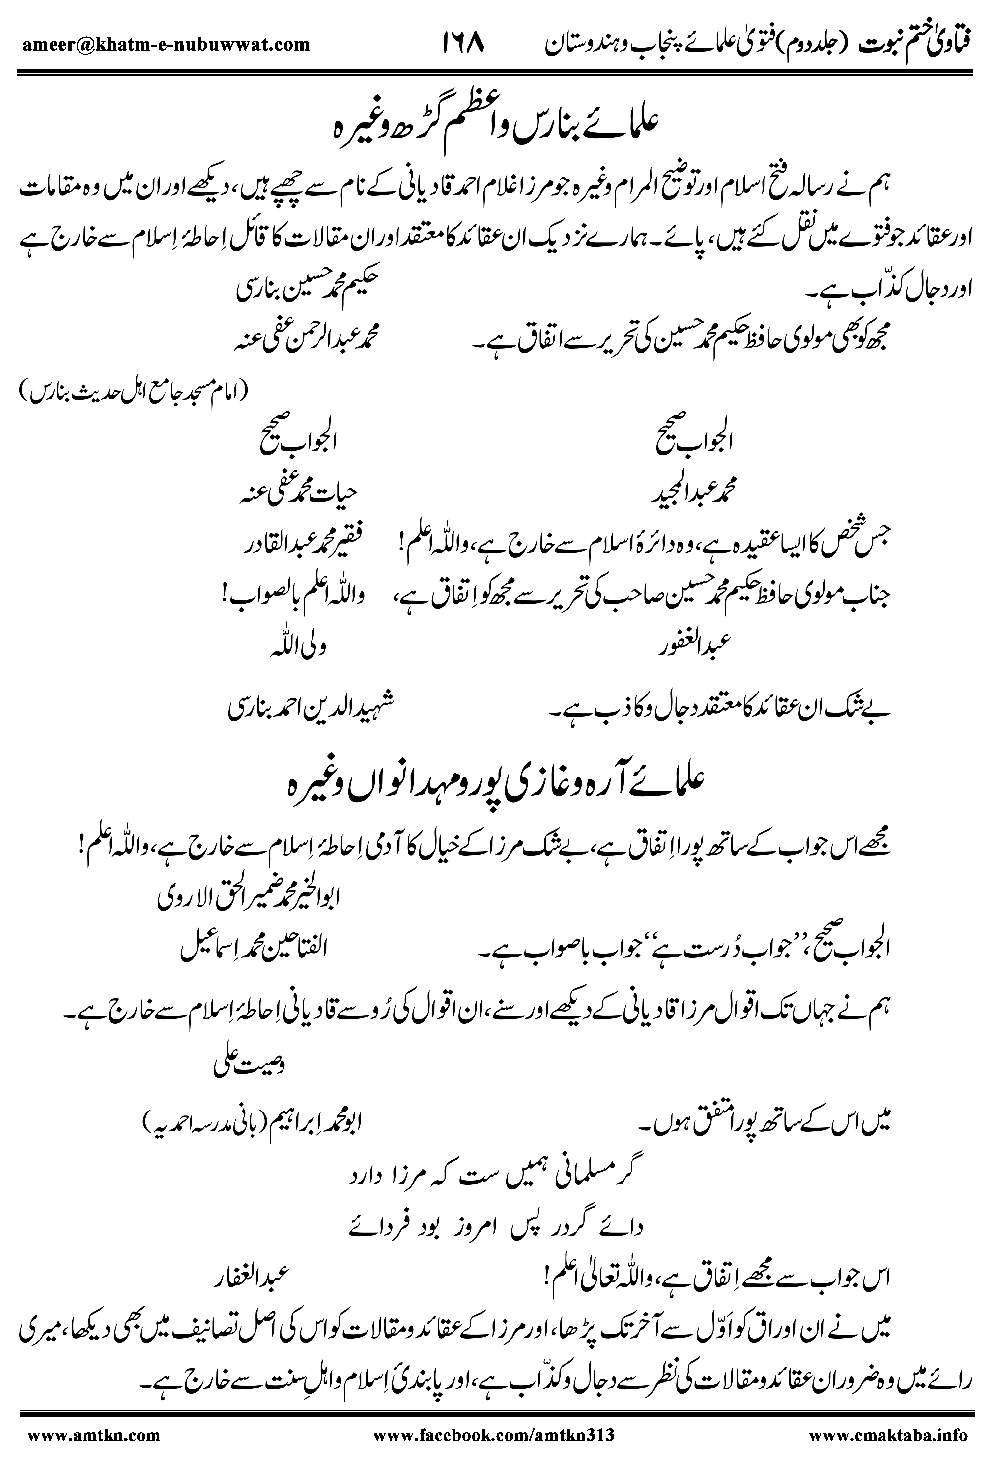 فتاویٰ ختم نبوت (جلد دوم) فتویٰ علمائے پنجاب و ہندوستان ۱۶۸ ameer@khatm-e-nubuwwat.com
علمائے بنارس و اعظم گڑھ وغیرہ
ہم نے رسالہ فتح اسلام اور توضیح المرام وغیرہ جو مرزا غلام احمد قادیانی کے نام سے چھپے ہیں، دیکھے اور ان میں وہ مقامات
اور عقائد جو فتوے میں نقل کئے ہیں، پائے۔ ہمارے نزدیک ان عقائد کا معتقد اور ان مقالات کا قائل اِحاطۂ اِسلام سے خارج ہے
اور دجال کذّاب ہے۔ حکیم محمد حسین بنارسی
مجھ کو بھی مولوی حافظ حکیم محمد حسین کی تحریر سے اتفاق ہے۔ محمد عبدالرحمن عفی عنہ
(امام مسجد جامع اہل حدیث بنارس)
الجواب صحیح الجواب صحیح
محمد عبدالمجید حیات محمد عفی عنہ
جس شخص کا ایسا عقیدہ ہے، وہ دائرۂ اسلام سے خارج ہے، واللہ اعلم! فقیر محمد عبدالقادر
جناب مولوی حافظ حکیم محمد حسین صاحب کی تحریر سے مجھ کو اِتفاق ہے، واللہ اعلم بالصواب!
عبدالغفور ولی اللہ
بے شک ان عقائد کا معتقد دجال و کاذب ہے۔ شہید الدین احمد بنارسی
علمائے آرہ و غازی پور و مہدانواں وغیرہ
مجھے اس جواب کے ساتھ پورا اِتفاق ہے، بے شک مرزا کے خیال کا آدمی اِحاطۂ اِسلام سے خارج ہے، واللہ اعلم!
ابوالخیر محمد ضمیر الحق الاروی
الجواب صحیح، ”جواب دُرست ہے“ جواب باصواب ہے۔ الفتاحین محمد اِسماعیل
ہم نے جہاں تک اقوال مرزا قادیانی کے دیکھے اور سنے، ان اقوال کی رُو سے قادیانی اِحاطۂ اِسلام سے خارج ہے۔
وصیت علی
میں اس کے ساتھ پورا متفق ہوں۔ ابو محمد اِبراہیم (بانی مدرسہ احمدیہ)
گر مسلمانی ہمیں ست کہ مرزا دارد
وائے گردر پس امروز بود فردائے
اس جواب سے مجھے اِتفاق ہے، واللہ تعالیٰ اعلم! عبدالغفار
میں نے ان اوراق کو اَوّل سے آخر تک پڑھا، اور مرزا کے عقائد و مقالات کو اس کی اصل تصانیف میں بھی دیکھا، میری
رائے میں وہ ضرور ان عقائد و مقالات کی نظر سے دجال و کذّاب ہے، اور پابندیٔ اِسلام و اہلِ سنت سے خارج ہے۔
www.amtkn.com www.facebook.com/amtkn313 www.cmaktaba.info